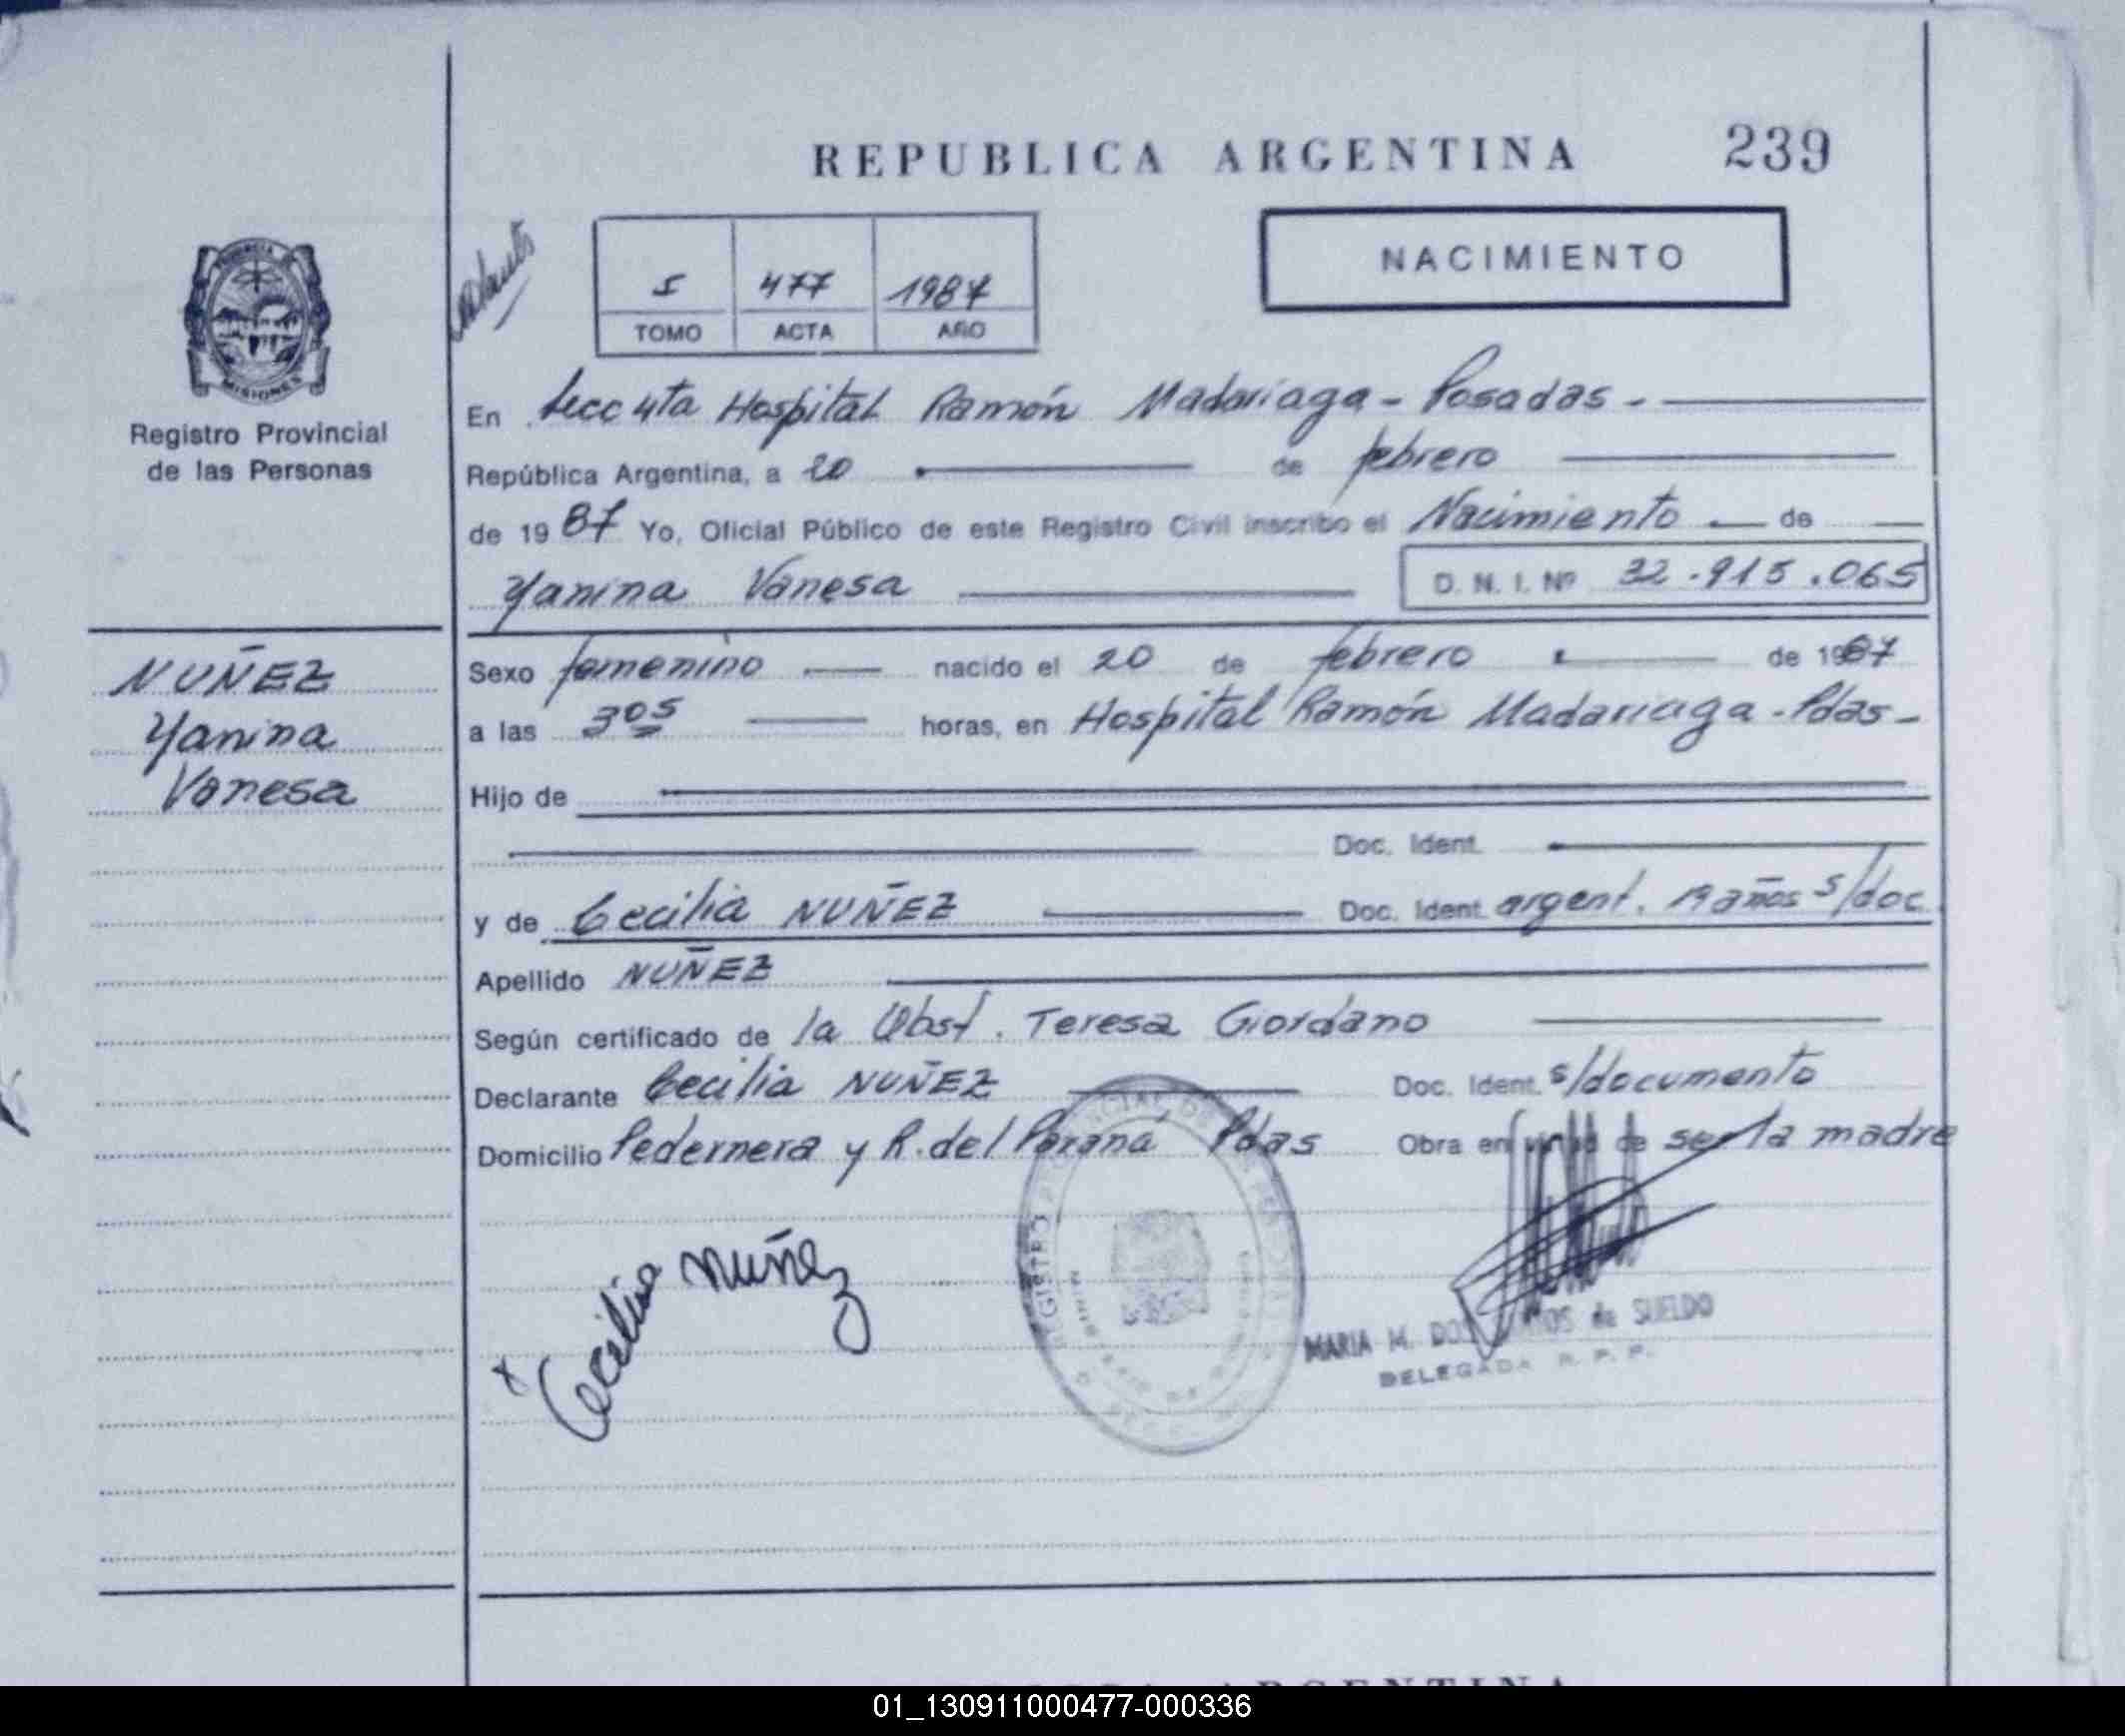 REPUBLICA ARGENTINA 239
NACIMIENTO
5 477 1987
TOMO ACTA AÑO
MISIONES
Registro Provincial
de las Personas
NUÑEZ
Yanina
Vanesa
En Secc 4ta Hospital Ramón Madariaga - Posadas -
República Argentina, a 20 de febrero
de 1987 Yo, Oficial Público de este Registro Civil inscribo el Nacimiento de
Yanina Vanesa D. N. I. Nº 32.915.065
Sexo femenino nacido el 20 de febrero de 1987
a las 3 05 horas, en Hospital Ramón Madariaga - Pdas -
Hijo de
Doc. Ident.
y de Cecilia NUÑEZ Doc. Ident. argent. 19 años s/doc
Apellido NUÑEZ
Según certificado de la Obst. Teresa Giordano
Declarante Cecilia NUÑEZ Doc. Ident. s/documento
Domicilio Pedernera y R. del Paraná Pdas Obra en virtud de ser la madre
x Cecilia Nuñez
MARIA M. DOS de SUELDO
DELEGADA R. P. P.
REGISTRO
01_130911000477-000336